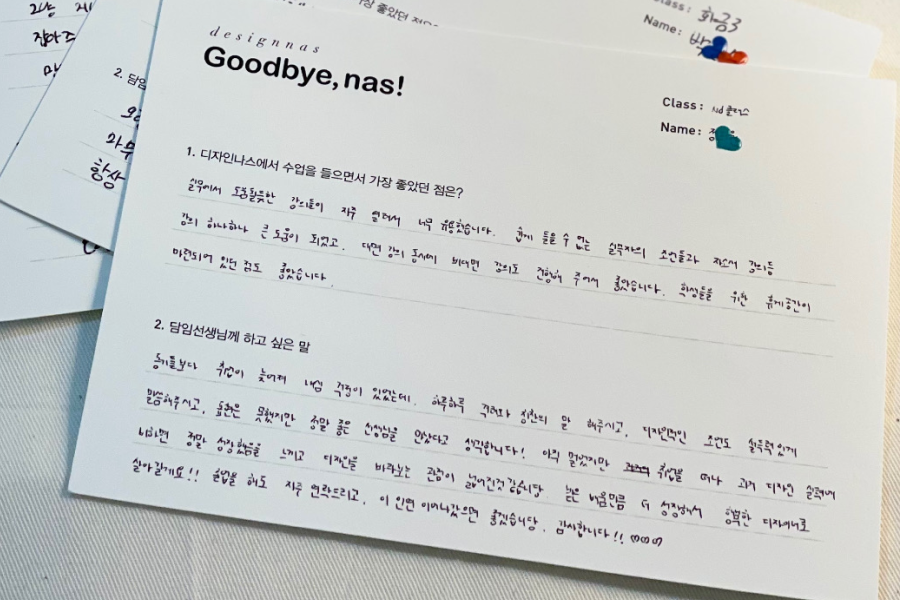 Class: 화금3
Name: 박
designnas
Goodbye, nas!
Class:
Name: 정
1. 디자인나스에서 수업을 들으면서 가장 좋았던 점은?
실무에서 도움될듯한 강의들이 자주 열려서 너무 유용했습니다. 쉽게 들을 수 없는 실무자의 조언들과 자소서 강의등
강의 하나하나 큰 도움이 되었고, 대면 강의 동시에 비대면 강의도 진행해 주어서 좋았습니다. 학생들을 위한 휴게공간이
마련되어 있던 점도 좋았습니다.
2. 담임선생님께 하고 싶은 말
동기들보다 취업이 늦어져 내심 걱정이 있었는데, 하루하루 격려와 칭찬의 말 해주시고, 디자인적인 조언도 설득력있게
말씀해주시고, 표현은 못했지만 정말 좋은 선생님을 만났다고 생각합니다! 아직 멀었지만 취업을 떠나 과거 디자인 실력에
비하면 정말 성장했음을 느끼고 디자인을 바라보는 관점이 넓어진것 같습니당. 늦은 배움만큼 더 성장해서 행복한 디자이너로
살아갈게요!! 취업을 해도 자주 연락드리고, 이 인연 이어나갔으면 좋겠습니당. 감사합니다!!
2. 담임
항상